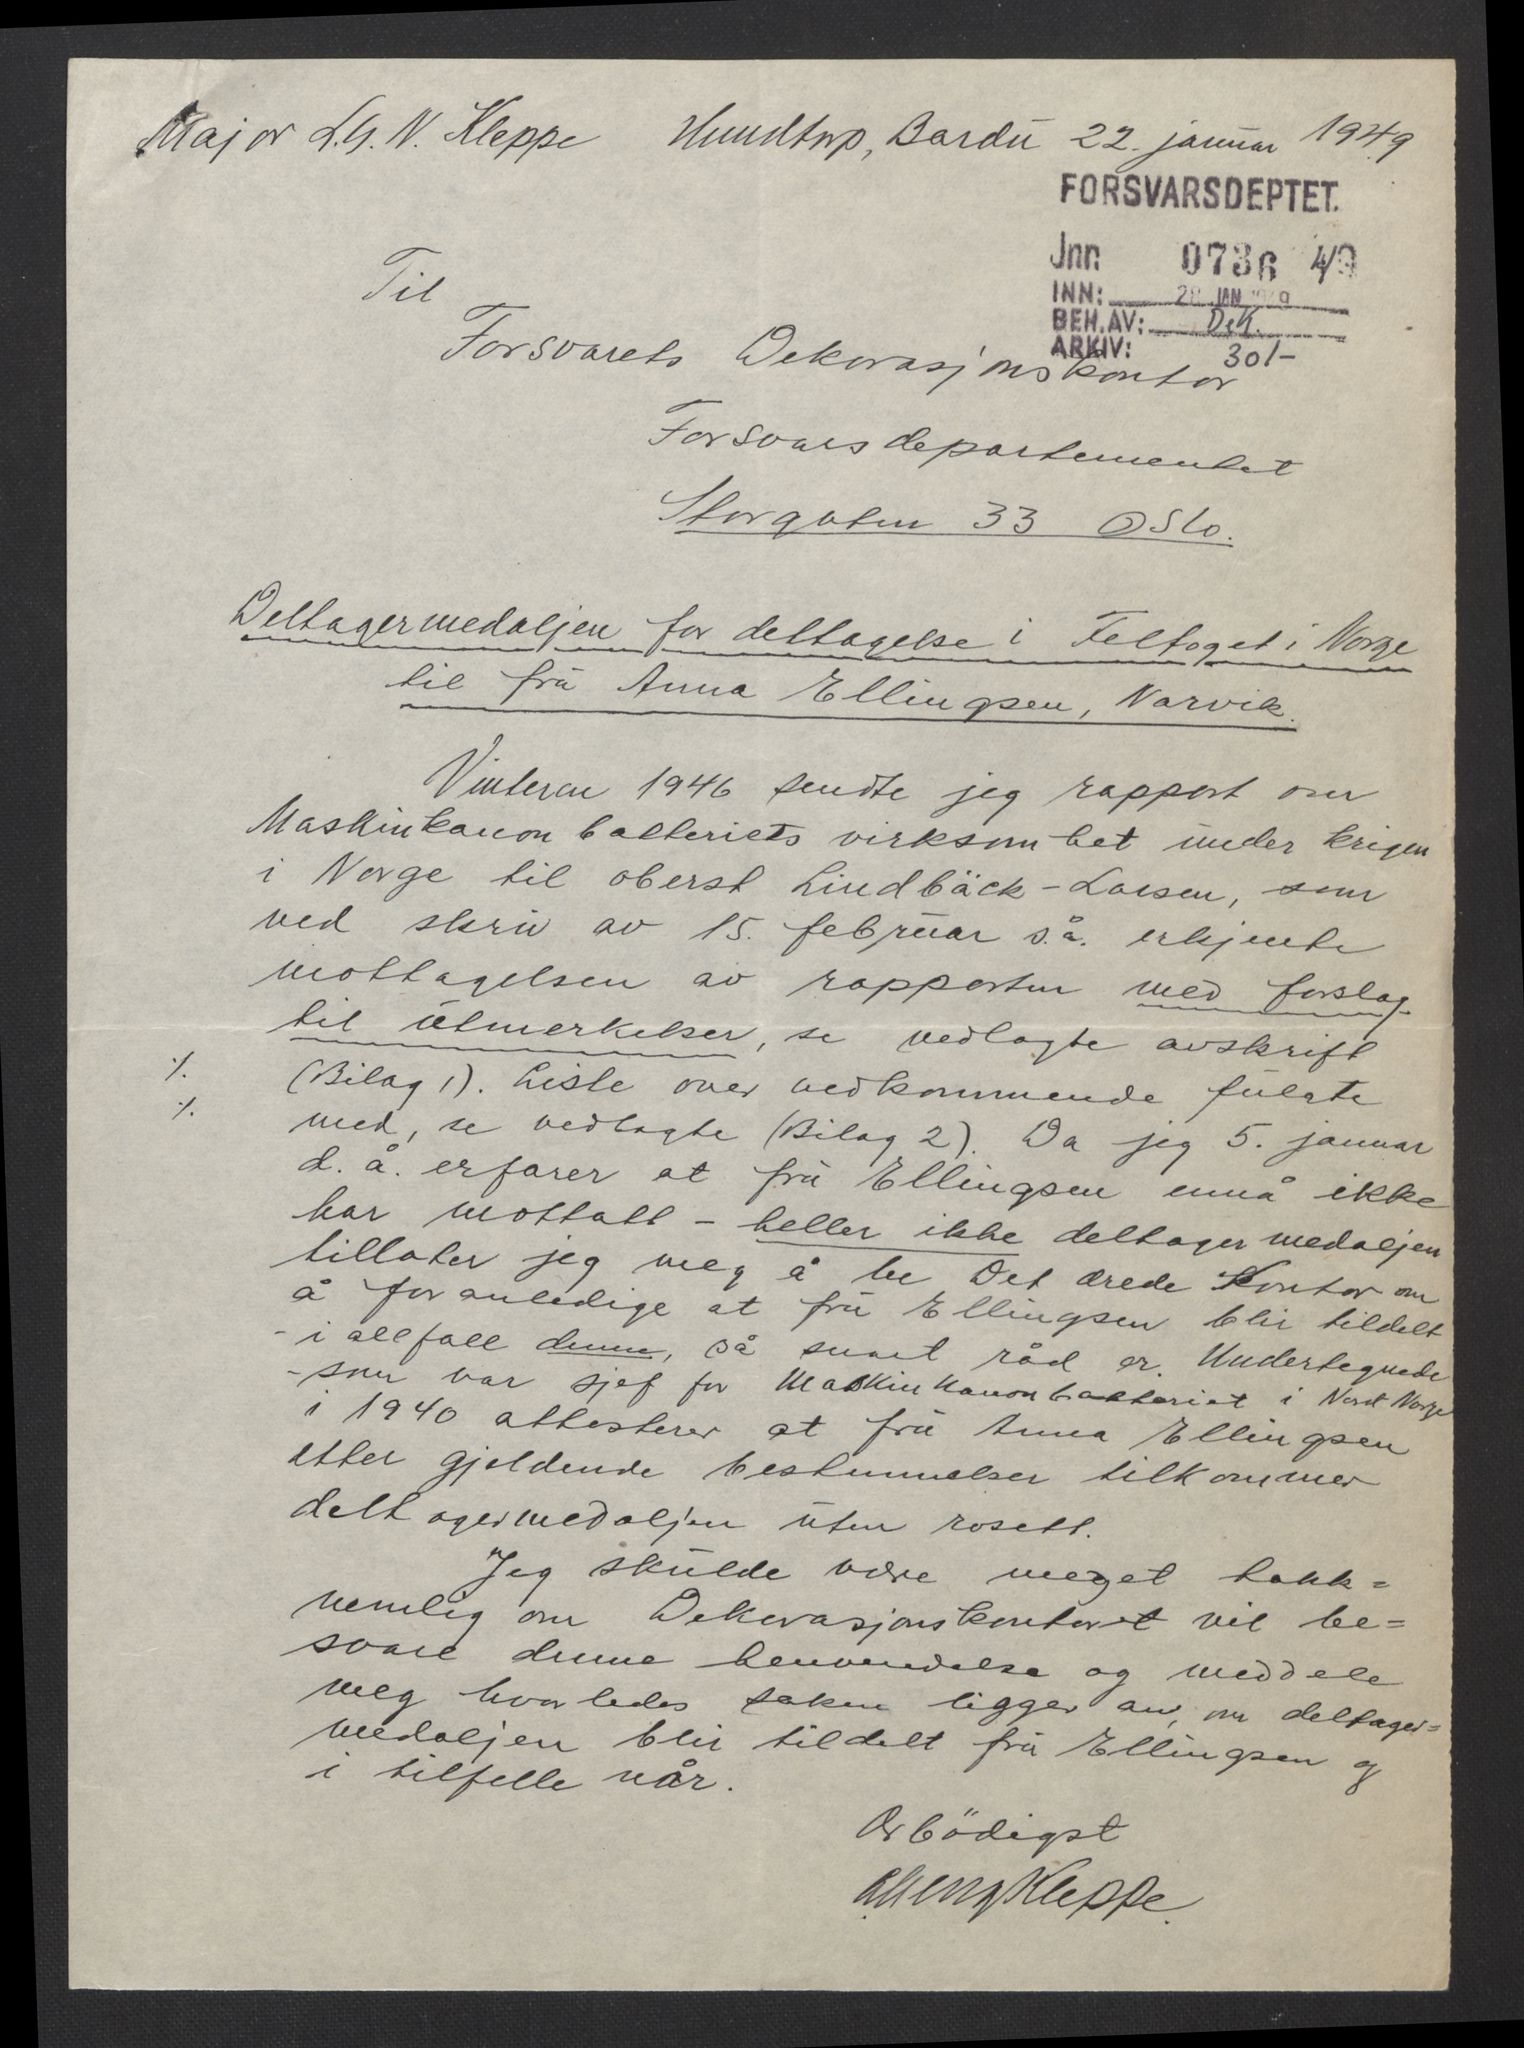 Major L.G.N. Kleppe Hundtorp, Bardu 22. januar 1949
FORSVARSDEPTET.
Jnr. 0736 49
INN: 28 JAN 1949
BEH. AV: Dek.
ARKIV: 301-
Til
Forsvarets Dekorasjonskontor
Forsvarsdepartementet
Storgaten 33 Oslo.
Deltagermedaljen for deltagelse i Feltoget i Norge
til frü Anna Ellingsen, Narvik.
Vinteren 1946 sendte jeg rapport om
Maskinkanonbatteriets virksomhet ünder krigen
i Norge til oberst Lindbäck-Larsen, som
ved skriv av 15. februar s.å. erkjente
mottagelsen av rapporten med forslag
til ütmerkelser, se vedlagte avskrift
./. (Bilag 1). Liste over vedkommende fülgte
./. med, se vedlagte (Bilag 2). Da jeg 5. januar
d. å. erfarer at frü Ellingsen ennå ikke
har mottatt - heller ikke deltagermedaljen
tillater jeg meg å be Det ærede Kontor om
å foranledige at frü Ellingsen blir tildelt
- i allfall denne, så snart råd er. Undertegnede
- som var sjef for Maskinkanonbatteriet i Nord Norge
i 1940 attesterer at frü Anna Ellingsen
etter gjeldende bestemmelser tilkommer
deltagermedaljen üten rosett.
Jeg skülde være meget takk=
nemlig om Dekorasjonskontoret vil be=
svare denne henvendelse og meddele
meg hvorledes saken ligger an, om deltager=
medaljen blir tildelt frü Ellingsen og
i tilfelle når.
Ærbödigst
Kleppe.